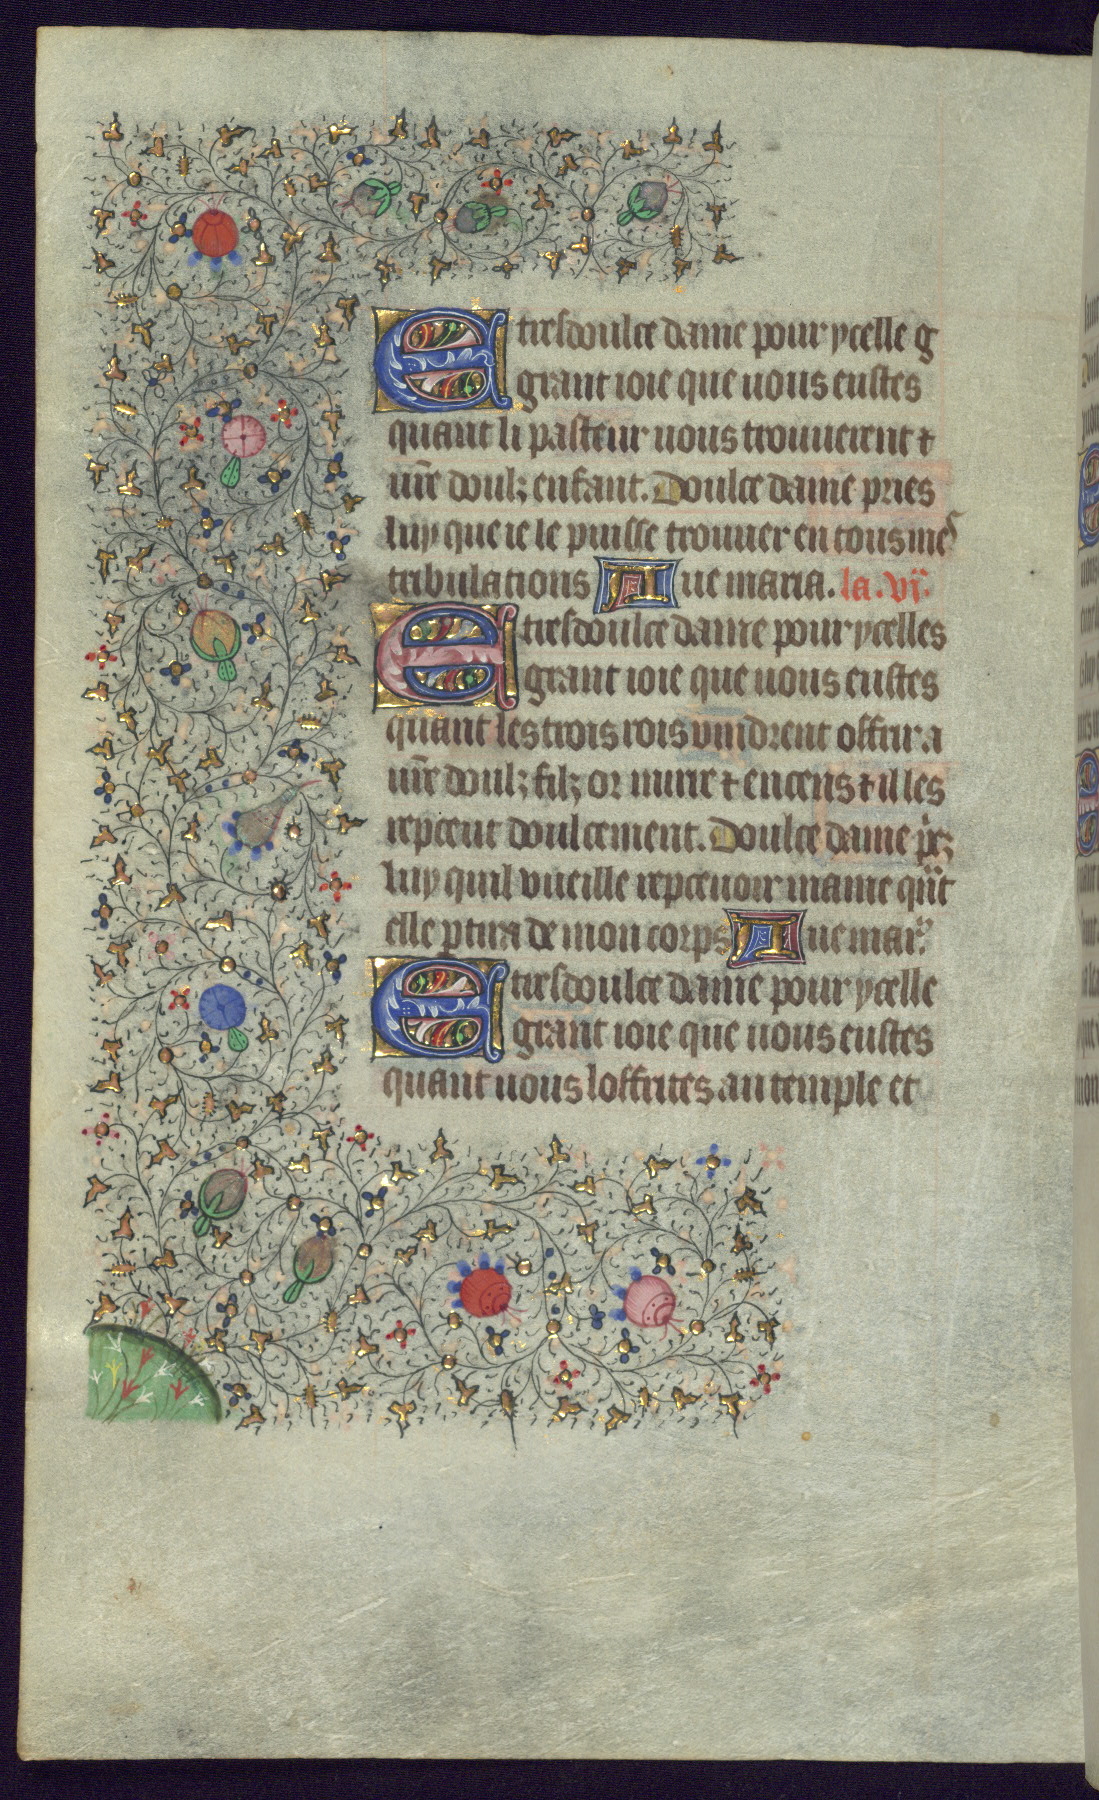 E tresdoulce dame pour ycelle g
grant ioie que uous eustes
quant li pasteur uous trouuerent ⁊
ur̃e doulz enfant. Doulce dame pries
luy que ie le puisse trouuer en tous mes
tribulations Aue maria. la .vi.
E tresdoulce dame pour ycelles
grant ioie que uous eustes
quant les trois rois vindrent offrir a
ur̃e doulz filz or mirre ⁊ encens ⁊ il les
receut doulcement. Doulce dame
luy quil vueille receuoir mame
elle ptira de mon corps Aue mar.
E tresdoulce dame pour ycelle
grant ioie que uous eustes
quant uous loffrites au temple et